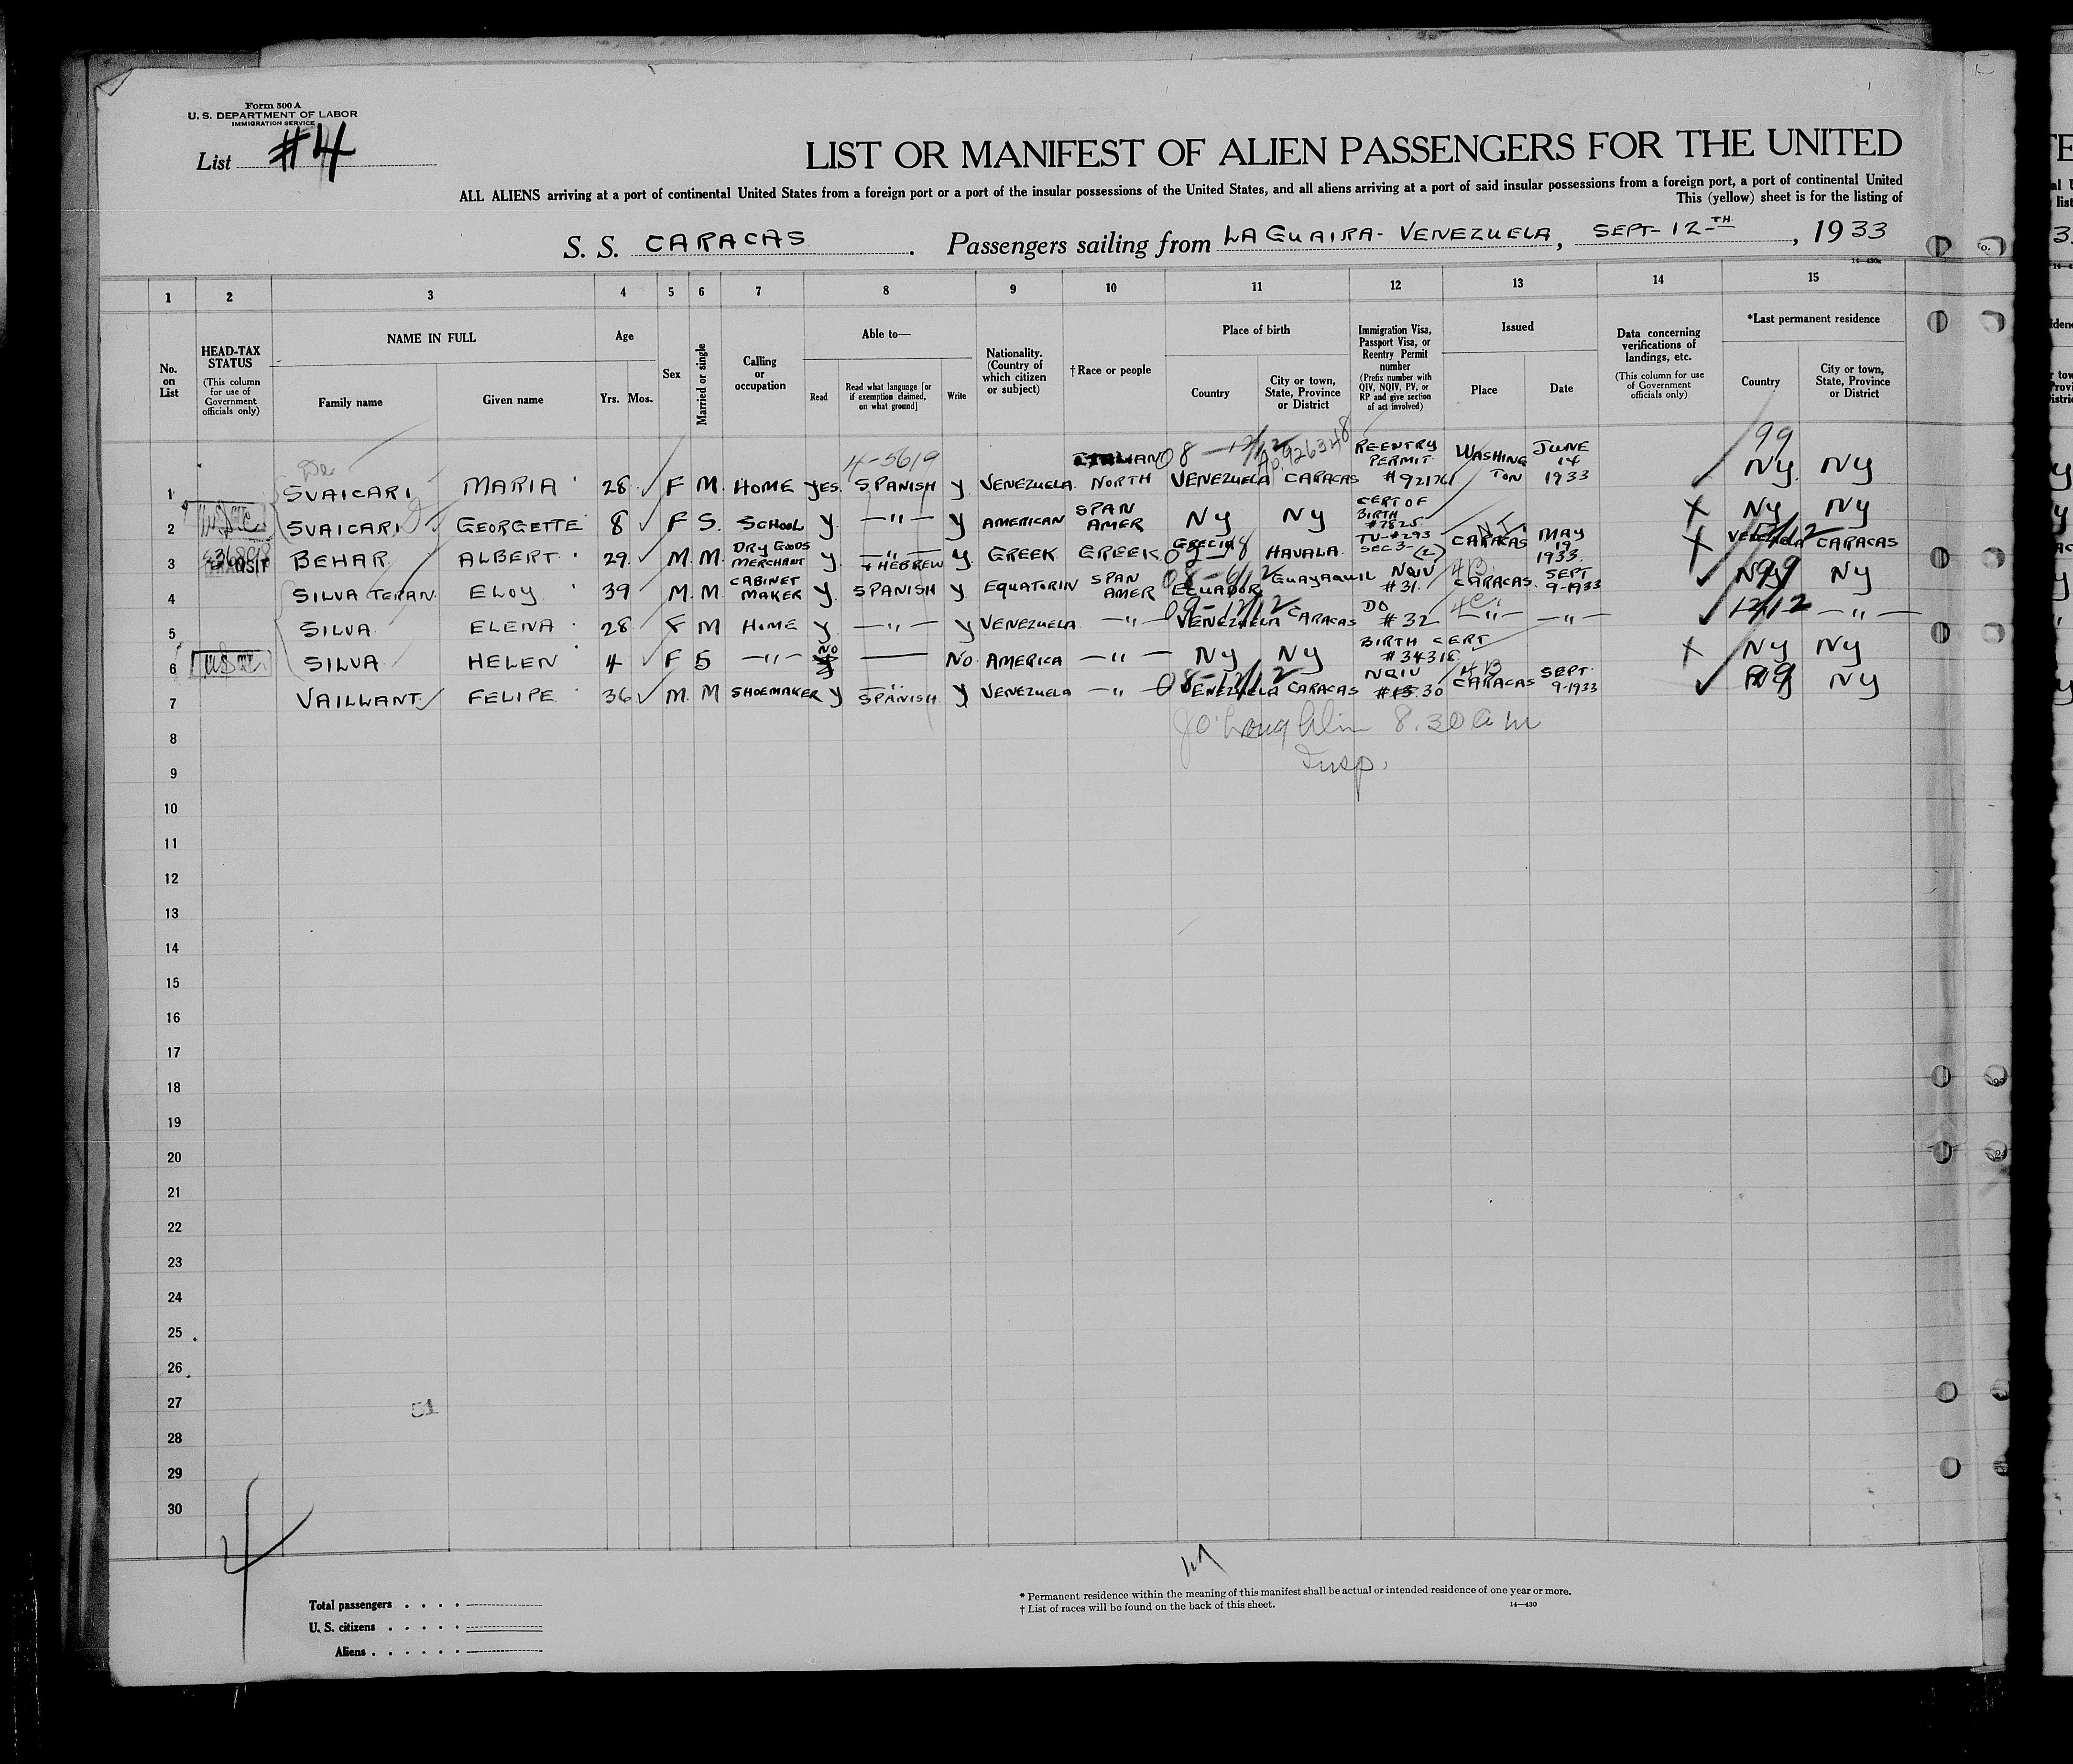 Form 500 A
U. S. DEPARTMENT OF LABOR
IMMIGRATION SERVICE
List #4
LIST OR MANIFEST OF ALIEN PASSENGERS FOR THE UNITED
ALL ALIENS arriving at a port of continental United States from a foreign port or a port of the insular possessions of the United States, and all aliens arriving at a port of said insular possessions from a foreign port, a port of continental United
This (yellow) sheet is for the listing of
S. S. CARACAS. Passengers sailing from LA GUAIRA- VENEZUELA, SEPT- 12-TH, 1933
1 2 3 4 5 6 7 8 9 10 11 12 13 14 15
No. on List
HEAD-TAX STATUS (This column for use of Government officials only)
NAME IN FULL
Family name
Given name
Age
Yrs. Mos.
Sex
Married or single
Calling or occupation
Able to—
Read
Read what language [or if exemption claimed, on what ground]
Write
Nationality. (Country of which citizen or subject)
†Race or people
Place of birth
Country
City or town, State, Province or District
Immigration Visa, Passport Visa, or Reentry Permit number (Prefix number with QIV, NQIV, PV, or RP and give section of act involved)
Issued
Place
Date
Data concerning verifications of landings, etc. (This column for use of Government officials only)
*Last permanent residence
Country
City or town, State, Province or District
4-5619 99
1 SVAICARI MARIA 28 F M. HOME YES. SPANISH Y VENEZUELA. NORTH VENEZUELA CARACAS REENTRY PERMIT WASHINGTON JUNE 14 1933 NY. NY
2 SVAICARI GEORGETTE 8 F S. SCHOOL Y —"— Y AMERICAN SPAN AMER NY NY CERT OF BIRTH #7825 NY NY
3 BEHAR ALBERT 29 M. M. DRY GOODS MERCHANT Y. —"— + HEBREW Y. GREEK GREEK. GRECIA HAVALA. TU-#293 SEC 3-(2) CARACAS MAY 19 1933. VENEZUELA CARACAS
4 SILVA TERAN. ELOY 39 M. M CABINET MAKER Y. SPANISH Y EQUATORIN SPAN AMER ECUADOR GUAYAQUIL NQIV #31. 4B CARACAS. SEPT 9-1933 NY NY
5 SILVA ELENA 28 F M HOME Y. —"— Y VENEZUELA —"— VENEZUELA CARACAS DO #32 4C —"— —"— —"—
6 SILVA HELEN 4 F S —"— NO —— NO AMERICA —"— NY NY BIRTH CERT #34318 NY NY
7 VAILLANT FELIPE 36 M. M SHOEMAKER Y SPANISH Y VENEZUELA —"— VENEZUELA CARACAS NQIV 30 4B CARACAS SEPT. 9-1933 NY
8 JO'Loughlin 8.30 a m
9 Insp.
10
11
12
13
14
15
16
17
18
19
20
21
22
23
24
25
26
27 51
28
29
30
4
Total passengers . . . .
U. S. citizens . . . . .
Aliens . . . . . .
* Permanent residence within the meaning of this manifest shall be actual or intended residence of one year or more.
† List of races will be found on the back of this sheet. 14—430